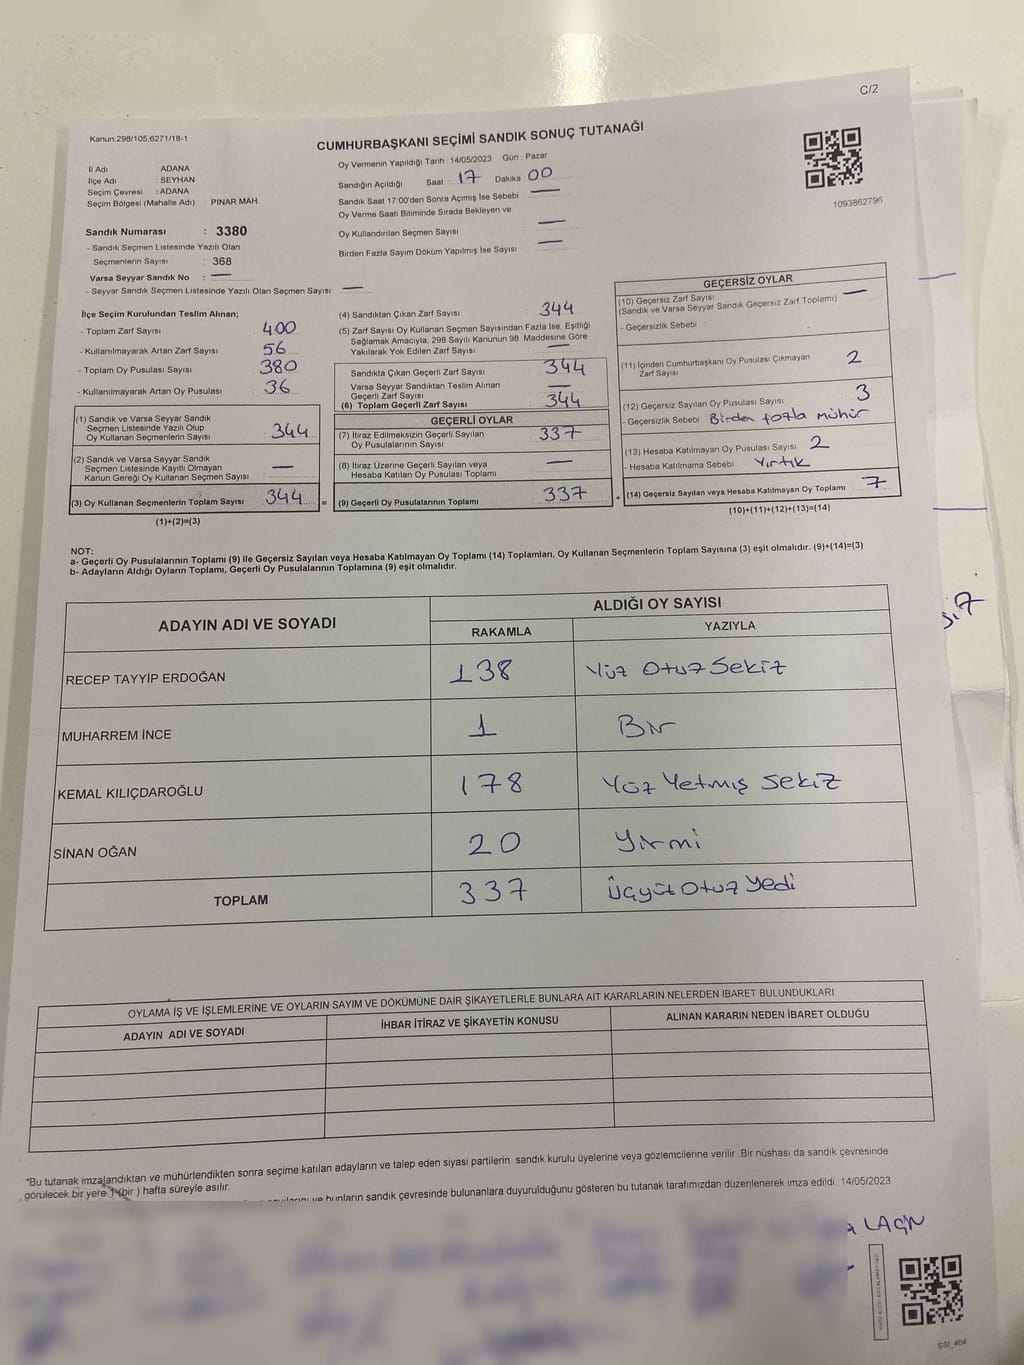 C/2
Kanun 298/105 6271/18-1
CUMHURBAŞKANI SEÇİMİ SANDIK SONUÇ TUTANAĞI
İl Adı : ADANA
İlçe Adı : SEYHAN
Seçim Çevresi : ADANA
Seçim Bölgesi (Mahalle Adı) PINAR MAH.
Sandık Numarası : 3380
- Sandık Seçmen Listesinde Yazılı Olan
Seçmenlerin Sayısı : 368
Varsa Seyyar Sandık No : —
- Seyyar Sandık Seçmen Listesinde Yazılı Olan Seçmen Sayısı: —
Oy Vermenin Yapıldığı Tarih : 14/05/2023 Gün : Pazar
Sandığın Açıldığı Saat 17 Dakika 00
Sandık Saat 17:00'den Sonra Açımış İse Sebebi —
Oy Verme Saati Bitiminde Sırada Bekleyen ve
Oy Kullandırılan Seçmen Sayısı —
Birden Fazla Sayım Döküm Yapılmış İse Sayısı —
1093862796
İlçe Seçim Kurulundan Teslim Alınan;
- Toplam Zarf Sayısı 400
- Kullanılmayarak Artan Zarf Sayısı 56
- Toplam Oy Pusulası Sayısı 380
- Kullanılmayarak Artan Oy Pusulası 36
(1) Sandık ve Varsa Seyyar Sandık
Seçmen Listesinde Yazılı Olup
Oy Kullanan Seçmenlerin Sayısı 344
(2) Sandık ve Varsa Seyyar Sandık
Seçmen Listesinde Kayıtlı Olmayan
Kanun Gereği Oy Kullanan Seçmen Sayısı —
(3) Oy Kullanan Seçmenlerin Toplam Sayısı 344 =
(1)+(2)=(3)
(4) Sandıktan Çıkan Zarf Sayısı 344
(5) Zarf Sayısı Oy Kullanan Seçmen Sayısından Fazla İse, Eşitliği
Sağlamak Amacıyla, 298 Sayılı Kanunun 98. Maddesine Göre
Yakılarak Yok Edilen Zarf Sayısı —
Sandıkta Çıkan Geçerli Zarf Sayısı 344
Varsa Seyyar Sandıktan Teslim Alınan
Geçerli Zarf Sayısı —
(6) Toplam Geçerli Zarf Sayısı 344
GEÇERLİ OYLAR
(7) İtiraz Edilmeksizin Geçerli Sayılan
Oy Pusulalarının Sayısı 337
(8) İtiraz Üzerine Geçerli Sayılan veya
Hesaba Katılan Oy Pusulası Toplamı —
(9) Geçerli Oy Pusulalarının Toplamı 337 +
GEÇERSİZ OYLAR
(10) Geçersiz Zarf Sayısı —
(Sandık ve Varsa Seyyar Sandık Geçersiz Zarf Toplamı)
- Geçersizlik Sebebi :
(11) İçinden Cumhurbaşkanı Oy Pusulası Çıkmayan
Zarf Sayısı 2
(12) Geçersiz Sayılan Oy Pusulası Sayısı 3
- Geçersizlik Sebebi Birden fazla mühür
(13) Hesaba Katılmayan Oy Pusulası Sayısı 2
- Hesaba Katılmama Sebebi Yırtık
(14) Geçersiz Sayılan veya Hesaba Katılmayan Oy Toplamı 7
(10)+(11)+(12)+(13)=(14)
NOT:
a- Geçerli Oy Pusulalarının Toplamı (9) ile Geçersiz Sayılan veya Hesaba Katılmayan Oy Toplamı (14) Toplamları, Oy Kullanan Seçmenlerin Toplam Sayısına (3) eşit olmalıdır. (9)+(14)=(3)
b- Adayların Aldığı Oyların Toplamı, Geçerli Oy Pusulalarının Toplamına (9) eşit olmalıdır.
ADAYIN ADI VE SOYADI
ALDIĞI OY SAYISI
RAKAMLA YAZIYLA
RECEP TAYYİP ERDOĞAN 138 Yüz Otuz Sekiz
MUHARREM İNCE 1 Bir
KEMAL KILIÇDAROĞLU 178 Yüz Yetmiş Sekiz
SİNAN OĞAN 20 Yirmi
TOPLAM 337 Üçyüz Otuz Yedi
OYLAMA İŞ VE İŞLEMLERİNE VE OYLARIN SAYIM VE DÖKÜMÜNE DAİR ŞİKAYETLERLE BUNLARA AİT KARARLARIN NELERDEN İBARET BULUNDUKLARI
ADAYIN ADI VE SOYADI İHBAR İTİRAZ VE ŞİKAYETİN KONUSU ALINAN KARARIN NEDEN İBARET OLDUĞU
*Bu tutanak imzalandıktan ve mühürlendikten sonra seçime katılan adayların ve talep eden siyasi partilerin sandık kurulu üyelerine veya gözlemcilerine verilir. Bir nüshası da sandık çevresinde
görülecek bir yere 1 (bir ) hafta süreyle asılır.
ve bunların sandık çevresinde bulunanlara duyurulduğunu gösteren bu tutanak tarafımızdan düzenlenerek imza edildi. 14/05/2023
LAÇİN
SSI_404